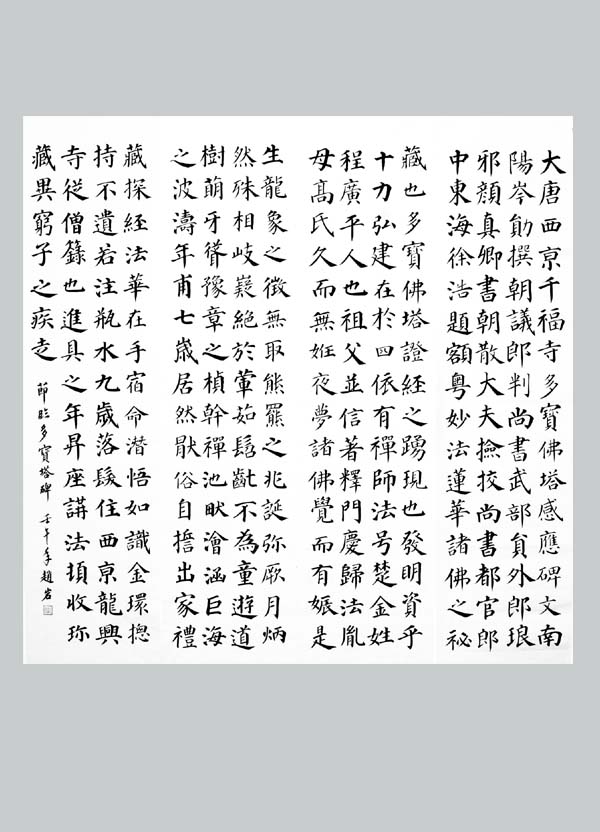 大唐西亰千福寺多寶佛塔感應碑文南
陽岑勛撰朝議郎判尚書武部員外郎琅
邪顏真卿書朝散大夫撿挍尚書都官郎
中東海徐浩題額粵妙法蓮華諸佛之祕
藏也多寶佛塔證經之踴現也發明資乎
十力弘建在於四依有禪師法号楚金姓
程廣平人也祖父並信著釋門慶歸法胤
母髙氏久而無姙夜夢諸佛覺而有娠是
生龍象之徵無取熊羆之兆誕弥厥月炳
然殊相岐嶷絕於葷茹髫齔不為童遊道
樹萌牙聳豫章之楨幹禪池畎澮涵巨海
之波濤年甫七歲居然猒俗自擔出家禮
藏探經法華在手宿命潛悟如識金環揔
持不遺若注瓶水九歲落髮住西亰龍興
寺從僧籙也進具之年昇座講法頓收珎
藏異窮子之疾走
節臨多寶塔碑 壬午年趙岩